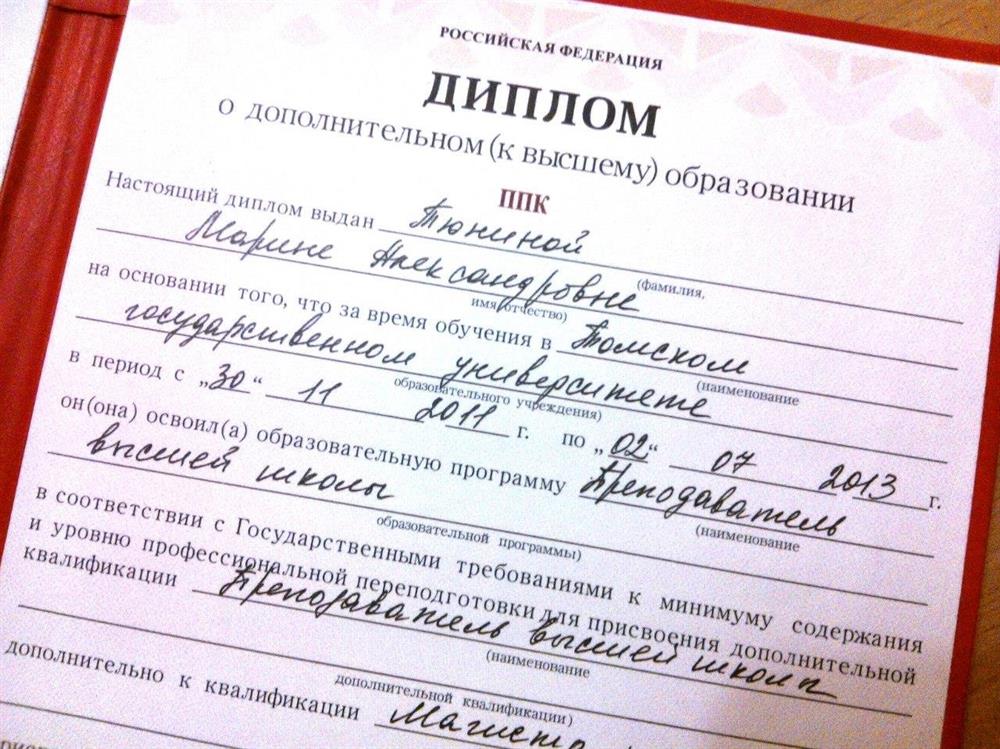 РОССИЙСКАЯ ФЕДЕРАЦИЯ
ДИПЛОМ
о дополнительном (к высшему) образовании
ППК
Настоящий диплом выдан Тюниной
(фамилия,
Марине Александровне
имя отчество)
на основании того, что за время обучения в Томском
(наименование
государственном университете
образовательного учреждения)
в период с „30“ 11 2011 г. по „02“ 07 2013 г.
он(она) освоил(а) образовательную программу Преподаватель
(наименование
высшей школы
образовательной программы)
в соответствии с Государственными требованиями к минимуму содержания
и уровню профессиональной переподготовки для присвоения дополнительной
квалификации Преподаватель высшей школы
(наименование
дополнительной квалификации)
дополнительно к квалификации